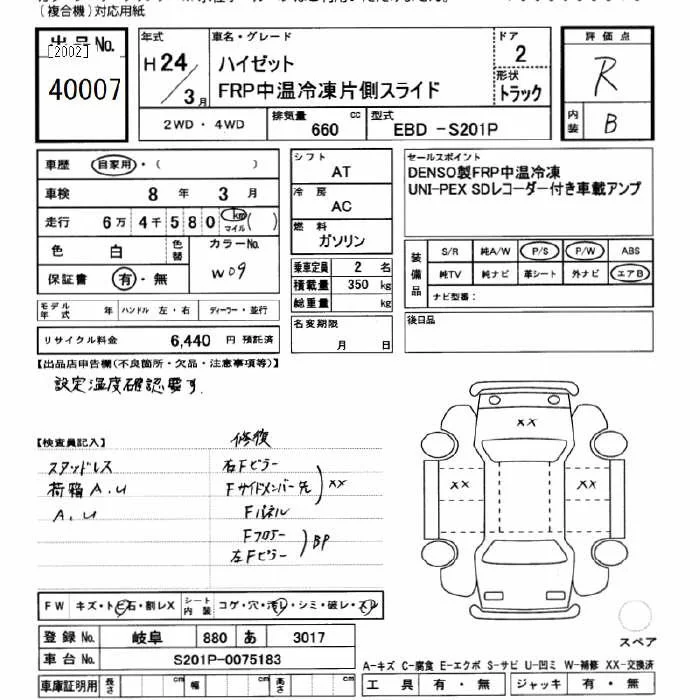 (複合機)対応用紙
出品No.
[2002]
40007
年式
H 24 / 3 月
車名・グレード
ハイゼット
FRP中温冷凍片側スライド
ドア
2
形状
トラック
評価点
R
内装
B
2WD・4WD
排気量
660 cc
型式
EBD -S201P
車歴 自家用・( )
車検 8 年 3 月
走行 6万 4千 5 8 0 km マイル ( )
色 白 色替
カラーNo.
W09
保証書 有・無
モデル年式 年 ハンドル 左・右 ディーラー・並行
リサイクル料金 6,440 円 預託済
シフト
AT
冷房
AC
燃料
ガソリン
乗車定員 2 名
積載量 350 kg
総重量 kg
名変期限
月 日
セールスポイント
DENSO製FRP中温冷凍
UNI-PEX SDレコーダー付き車載アンプ
装備品
S/R 純A/W P/S P/W ABS
純TV 純ナビ 革シート 外ナビ エアB
ナビ型番:
後日品
【出品店申告欄(不良箇所・欠品・注意事項等)】
設定温度確認要す.
【検査員記入】
スタッドレス
荷箱 A.U
A.U
修復
右Fピラー
Fサイドメンバー先
XX
Fパネル
Fフロアー
左Fピラー
BP
XX
XX
XX
スペア
FW キズ・トビ石・割レX
シート内装 コゲ・穴・汚レ・シミ・破レ・スレ
登録No. 岐阜 880 あ 3017
車台No. S201P-0075183
車庫証明用 長さ cm 幅 cm 高さ cm
A-キズ C-腐食 E-エクボ S-サビ U-凹ミ W-補修 XX-交換済
工具 有・無 ジャッキ 有・無